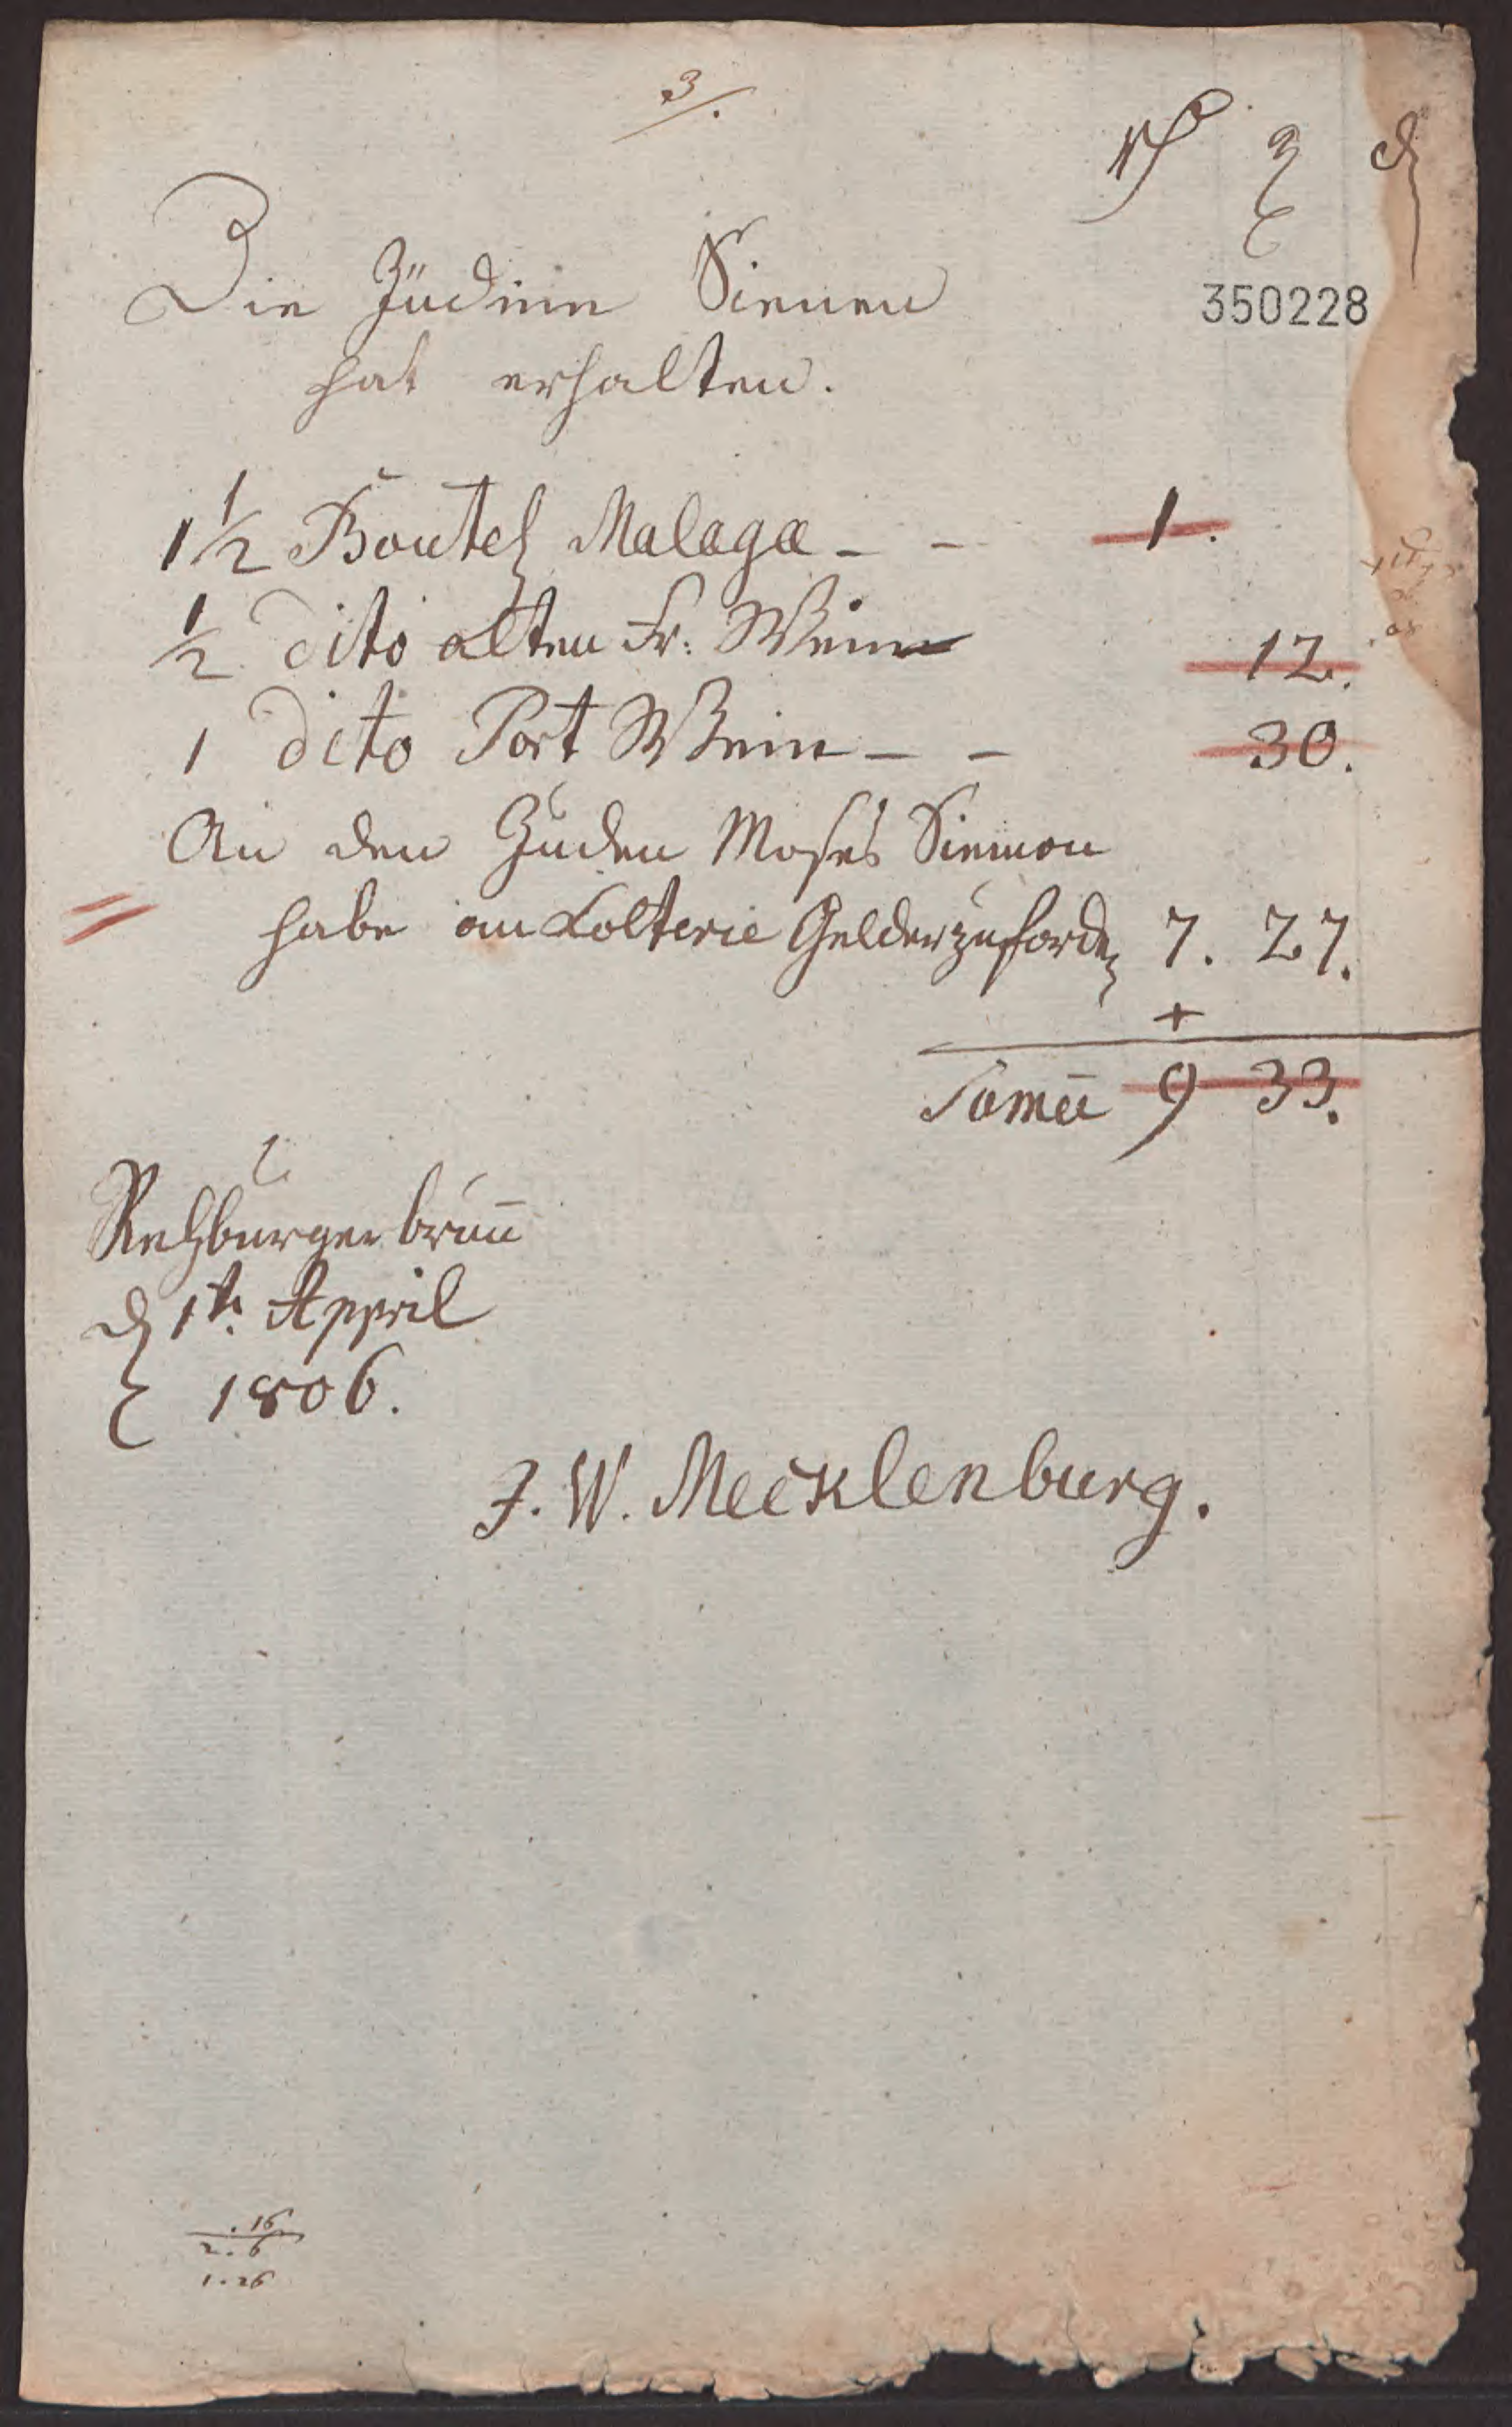 3/.
Rth g d
350228
Die Jüdinn Siemen
hat erhalten.
1 1/2 Boutel Malaga - - 1.
1/2 dito alten Fr: Wein 12.
1 dito Port Wein - - 30.
An den Juden Moses Siemon
habe an Lotterie Gelder zu fordn 7. 27.
+
Sum̅a 9 33.
Rehburger brun̅
d 1t. Appril
1806.
J. W. Mecklenburg.
. 16
2. 6
1. 26